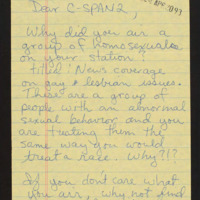 Dear C-SPAN2,
Why did you air a
group of homosexuals
on your station?
titled: News coverage
on gay & lesbian issues.
These are a group of
people with an abnormal
sexual behavior and you
are treating them the
same way you would
treat a Race. Why?!?
If you don't care what
you air, why not